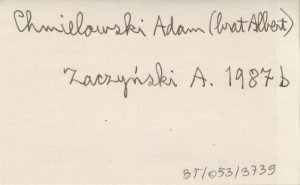 Chmielowski Adam (brat Albert)
Zaczyński A. 1987 b
BT/053/3739